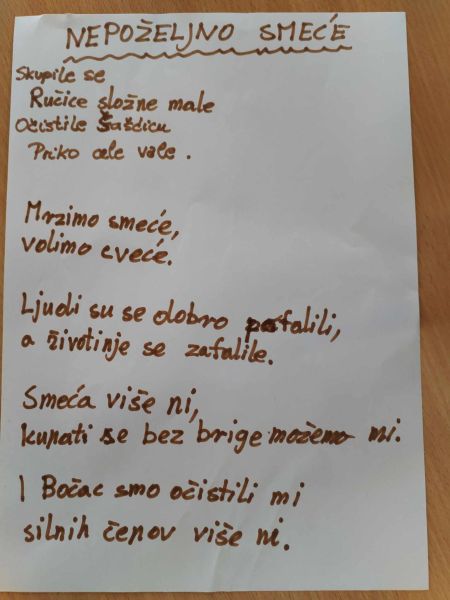 NEPOŽELJNO SMEĆE
Skupile se
Ručice složne male
Očistile Šašdicu
Priko cele vale.
Mrzimo smeće,
volimo cveće.
Ljudi su se dobro pofalili,
a životinje se zafalile.
Smeća više ni,
kupati se bez brige možemo mi.
I Bočac smo očistili mi
silnih čenov više ni.